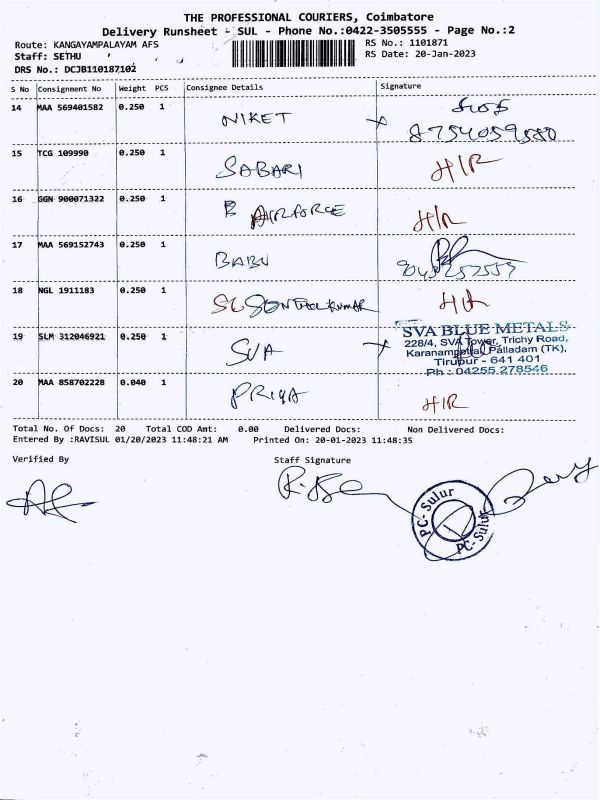 THE PROFESSIONAL COURIERS, Coimbatore
Delivery Runsheet - SUL - Phone No.:0422-3505555 - Page No.:2
Route: KANGAYAMPALAYAM AFS
RS No.: 1101871
Staff: SETHU
RS Date: 20-Jan-2023
DRS No.: DCJB110187102
S No Consignment No Weight PCS Consignee Details Signature
14 MAA 569401582 0.250 1 NIKET
8754059580
15 TCG 109990 0.250 1 SABARI H/R
16 GGN 900071322 0.250 1 AIRFORCE H/R
17 MAA 569152743 0.250 1 BABU
18 NGL 1911183 0.250 1 H/R
19 SLM 312046921 0.250 1 SVA
SVA BLUE METALS
228/4, SVA Tower, Trichy Road,
Karanampettai, Palladam (TK),
Tirupur - 641 401
Ph : 04255 278546
20 MAA 858702228 0.040 1 PRIYA H/R
Total No. Of Docs: 20 Total COD Amt: 0.00 Delivered Docs: Non Delivered Docs:
Entered By :RAVISUL 01/20/2023 11:48:21 AM Printed On: 20-01-2023 11:48:35
Verified By Staff Signature
PC-Sulur
PC-Sulur